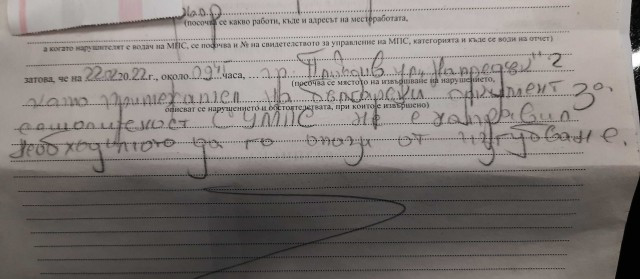 (посочва се какво работи, къде и адресът на месторабoтата,
а когато нарушителят е водач на МПС, се посочва и № на свидетелството за управление на МПС, категорията и къде се води на отчет)
затова, че на 22.02.2022 г., около 0945 часа, гр. Пловдив ул. "Напредък" 2
(посочва се мястото на извършване на нарушението,
като притежател на български документ
описват се нарушението и обстоятелствата, при които е извършено)
самоличност СУМПС не е направил
необходимото да го опази от изгубване.